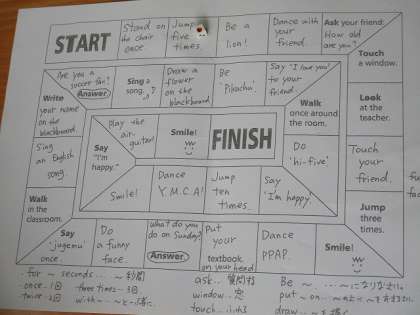 START
Stand on
the chair
once
Jump
five
times.
Be a
lion!
Dance with
your
friend.
Ask your friend:
How old
are you?
Touch
a window.
Look
at the
teacher.
Touch
your
friend.
Jump
three
times.
Smile!
Dance
PPAP.
Put
your
textbook
on your head!
What do you
do on Sunday?
Answer
Do
a funny
face.
Say
"jugemu"
once.
Walk
in the
classroom.
Sing
an English
song.
Write
your name
on the
blackboard
Are you a
soccer fan?
Answer
Sing a
song.
Draw a
flower
on the
blackboard
Be
"Pikachu".
Say "I love you"
to your
friend.
Walk
once around
the room.
Do
'hi-five'
Say
'I'm happy'
Jump
ten
times.
Dance
Y.M.C.A!
Smile!
Say
"I'm
happy."
Play the
air-
guitar!
Smile!
FINISH
・for ~ seconds… ~秒間
・once・1回 three times…3回
・twice・2回 with~…~と一緒に
ask‥質問する
window‥窓
touch‥
Be ~…~になりなさい
put ~ on…
draw…~を描く